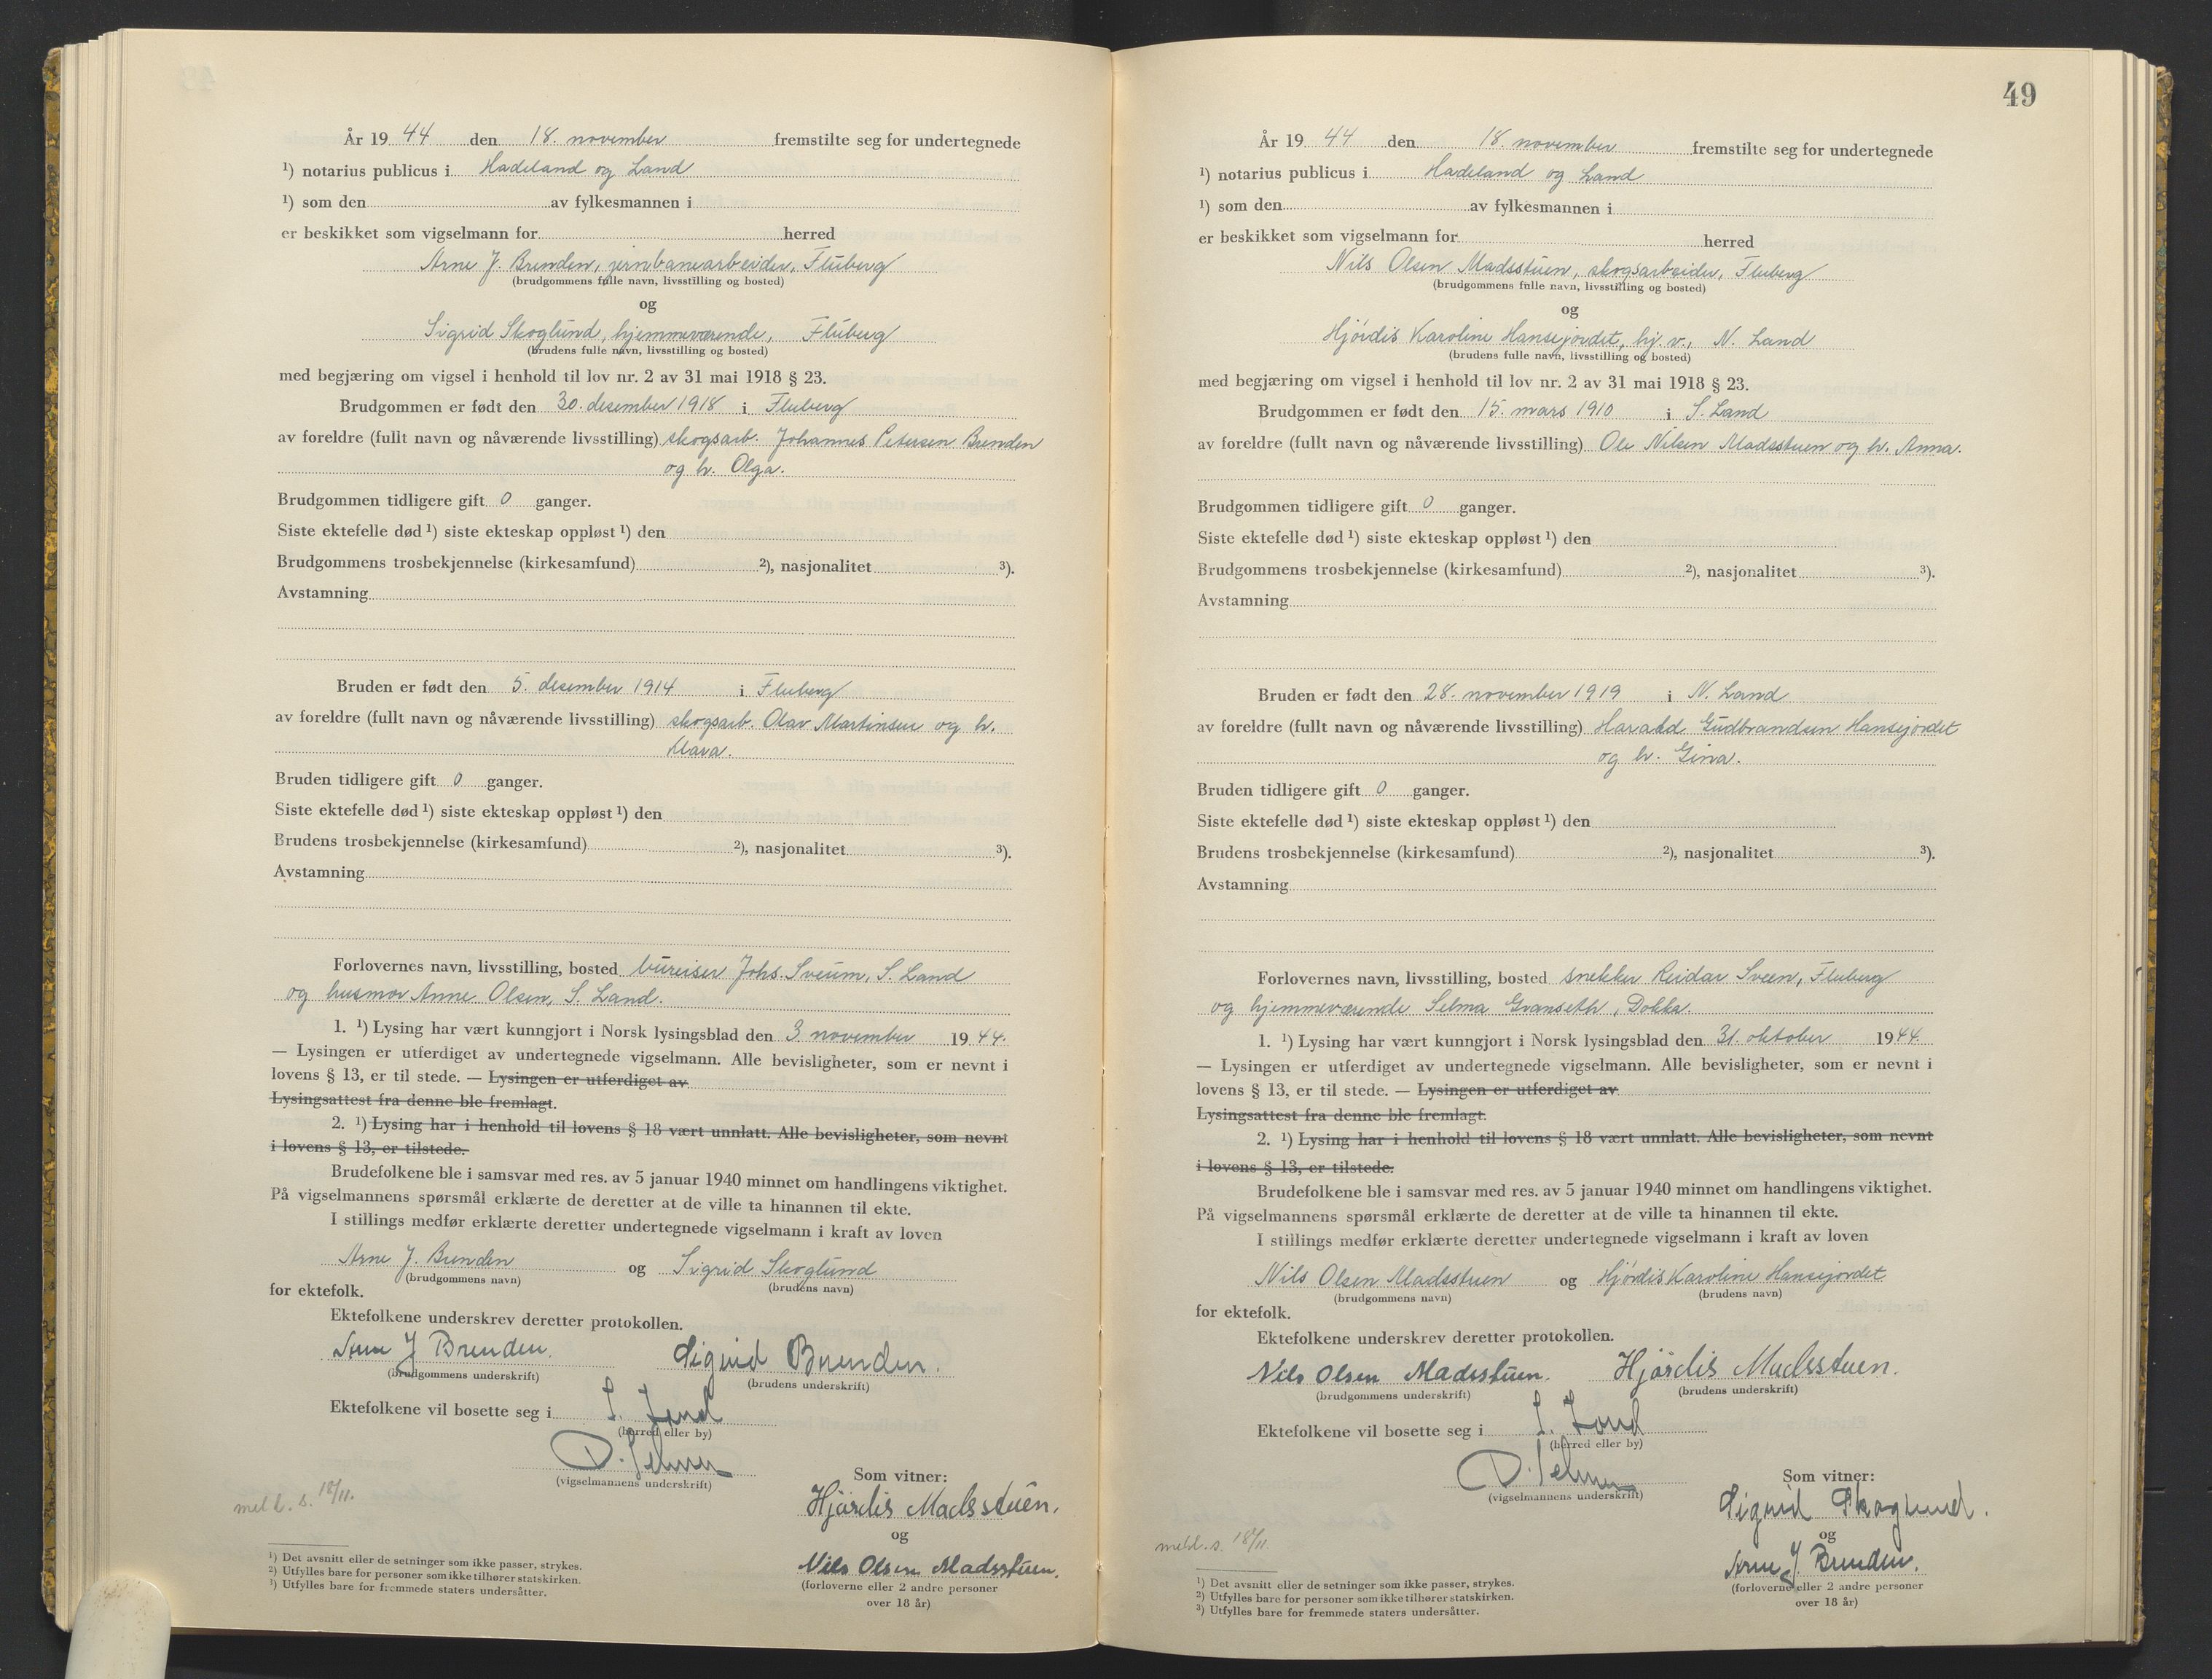 År 19 44 den 18. november fremstilte seg for undertegnede
¹) notarius publicus i Hadeland og Land
¹) som den av fylkesmannen i
er beskikket som vigselmann for herred
Arne J. Brenden, jernbanearbeider, Fluberg
(brudgommens fulle navn, livsstilling og bosted)
og
Sigrid Skoglund, hjemmeværende, Fluberg
(brudens fulle navn, livsstilling og bosted)
med begjæring om vigsel i henhold til lov nr. 2 av 31 mai 1918 § 23.
Brudgommen er født den 30. desember 1918 i Fluberg
av foreldre (fullt navn og nåværende livsstilling) skogsarb. Johannes Petersen Brenden
og h. Olga.
Brudgommen tidligere gift 0 ganger.
Siste ektefelle død ¹) siste ekteskap oppløst ¹) den
Brudgommens trosbekjennelse (kirkesamfund) ²), nasjonalitet ³).
Avstamning
Bruden er født den 5. desember 1914 i Fluberg
av foreldre (fullt navn og nåværende livsstilling) skogsarb. Olav Martinsen og h.
Klara.
Bruden tidligere gift 0 ganger.
Siste ektefelle død ¹) siste ekteskap oppløst ¹) den
Brudens trosbekjennelse (kirkesamfund) ²), nasjonalitet ³).
Avstamning
Forlovernes navn, livsstilling, bosted bureiser Johs. Sveum, S. Land
og husmor Anne Olsen, S. Land.
1. ¹) Lysing har vært kunngjort i Norsk lysingsblad den 3. november 19 44.
— Lysingen er utferdiget av undertegnede vigselmann. Alle bevisligheter, som er nevnt i
lovens § 13, er til stede. — Lysingen er utferdiget av
Lysingsattest fra denne ble fremlagt.
2. ¹) Lysing har i henhold til lovens § 18 vært unnlatt. Alle bevisligheter, som nevnt
i lovens § 13, er tilstede.
Brudefolkene ble i samsvar med res. av 5 januar 1940 minnet om handlingens viktighet.
På vigselmannens spørsmål erklærte de deretter at de ville ta hinannen til ekte.
I stillings medfør erklærte deretter undertegnede vigselmann i kraft av loven
Arne J. Brenden og Sigrid Skoglund
(brudgommens navn) (brudens navn)
for ektefolk.
Ektefolkene underskrev deretter protokollen.
Arne J Brenden. Sigrid Brenden.
(brudgommens underskrift) (brudens underskrift)
Ektefolkene vil bosette seg i S. Land
(herred eller by)
D. Selmer
(vigselmannens underskrift)
Som vitner:
meld. s. 18/11.
Hjørdis Madsstuen.
og
Nils Olsen Madsstuen.
(forloverne eller 2 andre personer
over 18 år)
¹) Det avsnitt eller de setninger som ikke passer, strykes.
²) Utfylles bare for personer som ikke tilhører statskirken.
³) Utfylles bare for fremmede staters undersåtter.
49
År 19 44 den 18. november fremstilte seg for undertegnede
¹) notarius publicus i Hadeland og Land
¹) som den av fylkesmannen i
er beskikket som vigselmann for herred
Nils Olsen Madsstuen, skogsarbeider, Fluberg
(brudgommens fulle navn, livsstilling og bosted)
og
Hjördis Karoline Hansejordet, hj. v., N. Land
(brudens fulle navn, livsstilling og bosted)
med begjæring om vigsel i henhold til lov nr. 2 av 31 mai 1918 § 23.
Brudgommen er født den 15. mars 1910 i S. Land
av foreldre (fullt navn og nåværende livsstilling) Ole Nilsen Madsstuen og h. Anna.
Brudgommen tidligere gift 0 ganger.
Siste ektefelle død ¹) siste ekteskap oppløst ¹) den
Brudgommens trosbekjennelse (kirkesamfund) ²), nasjonalitet ³).
Avstamning
Bruden er født den 28. november 1919 i N. Land
av foreldre (fullt navn og nåværende livsstilling) Harald Gudbrandsen Hansejordet
og h. Gina.
Bruden tidligere gift 0 ganger.
Siste ektefelle død ¹) siste ekteskap oppløst ¹) den
Brudens trosbekjennelse (kirkesamfund) ²), nasjonalitet ³).
Avstamning
Forlovernes navn, livsstilling, bosted snekker Reidar Sveen, Fluberg
og hjemmeværende Selma Granseth, Dokka.
1. ¹) Lysing har vært kunngjort i Norsk lysingsblad den 31. oktober 19 44.
— Lysingen er utferdiget av undertegnede vigselmann. Alle bevisligheter, som er nevnt i
lovens § 13, er til stede. — Lysingen er utferdiget av
Lysingsattest fra denne ble fremlagt.
2. ¹) Lysing har i henhold til lovens § 18 vært unnlatt. Alle bevisligheter, som nevnt
i lovens § 13, er tilstede.
Brudefolkene ble i samsvar med res. av 5 januar 1940 minnet om handlingens viktighet.
På vigselmannens spørsmål erklærte de deretter at de ville ta hinannen til ekte.
I stillings medfør erklærte deretter undertegnede vigselmann i kraft av loven
Nils Olsen Madsstuen og Hjördis Karoline Hansejordet
(brudgommens navn) (brudens navn)
for ektefolk.
Ektefolkene underskrev deretter protokollen.
Nils Olsen Madsstuen. Hjørdis Madsstuen.
(brudgommens underskrift) (brudens underskrift)
Ektefolkene vil bosette seg i S. Land
(herred eller by)
D. Selmer
(vigselmannens underskrift)
Som vitner:
Sigrid Skoglund.
og
meld. s. 18/11.
Arne J. Brenden.
(forloverne eller 2 andre personer
over 18 år)
¹) Det avsnitt eller de setninger som ikke passer, strykes.
²) Utfylles bare for personer som ikke tilhører statskirken.
³) Utfylles bare for fremmede staters undersåtter.